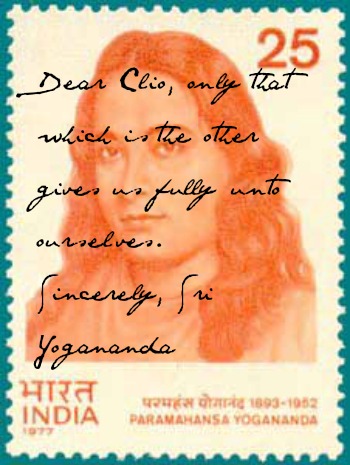 25
Dear Clio, only that
which is the other
gives us fully unto
ourselves.
Sincerely, Sri
Yogananda
भारत
INDIA
1977
परमहंस योगानंद 1893-1952
PARAMAHANSA YOGANANDA